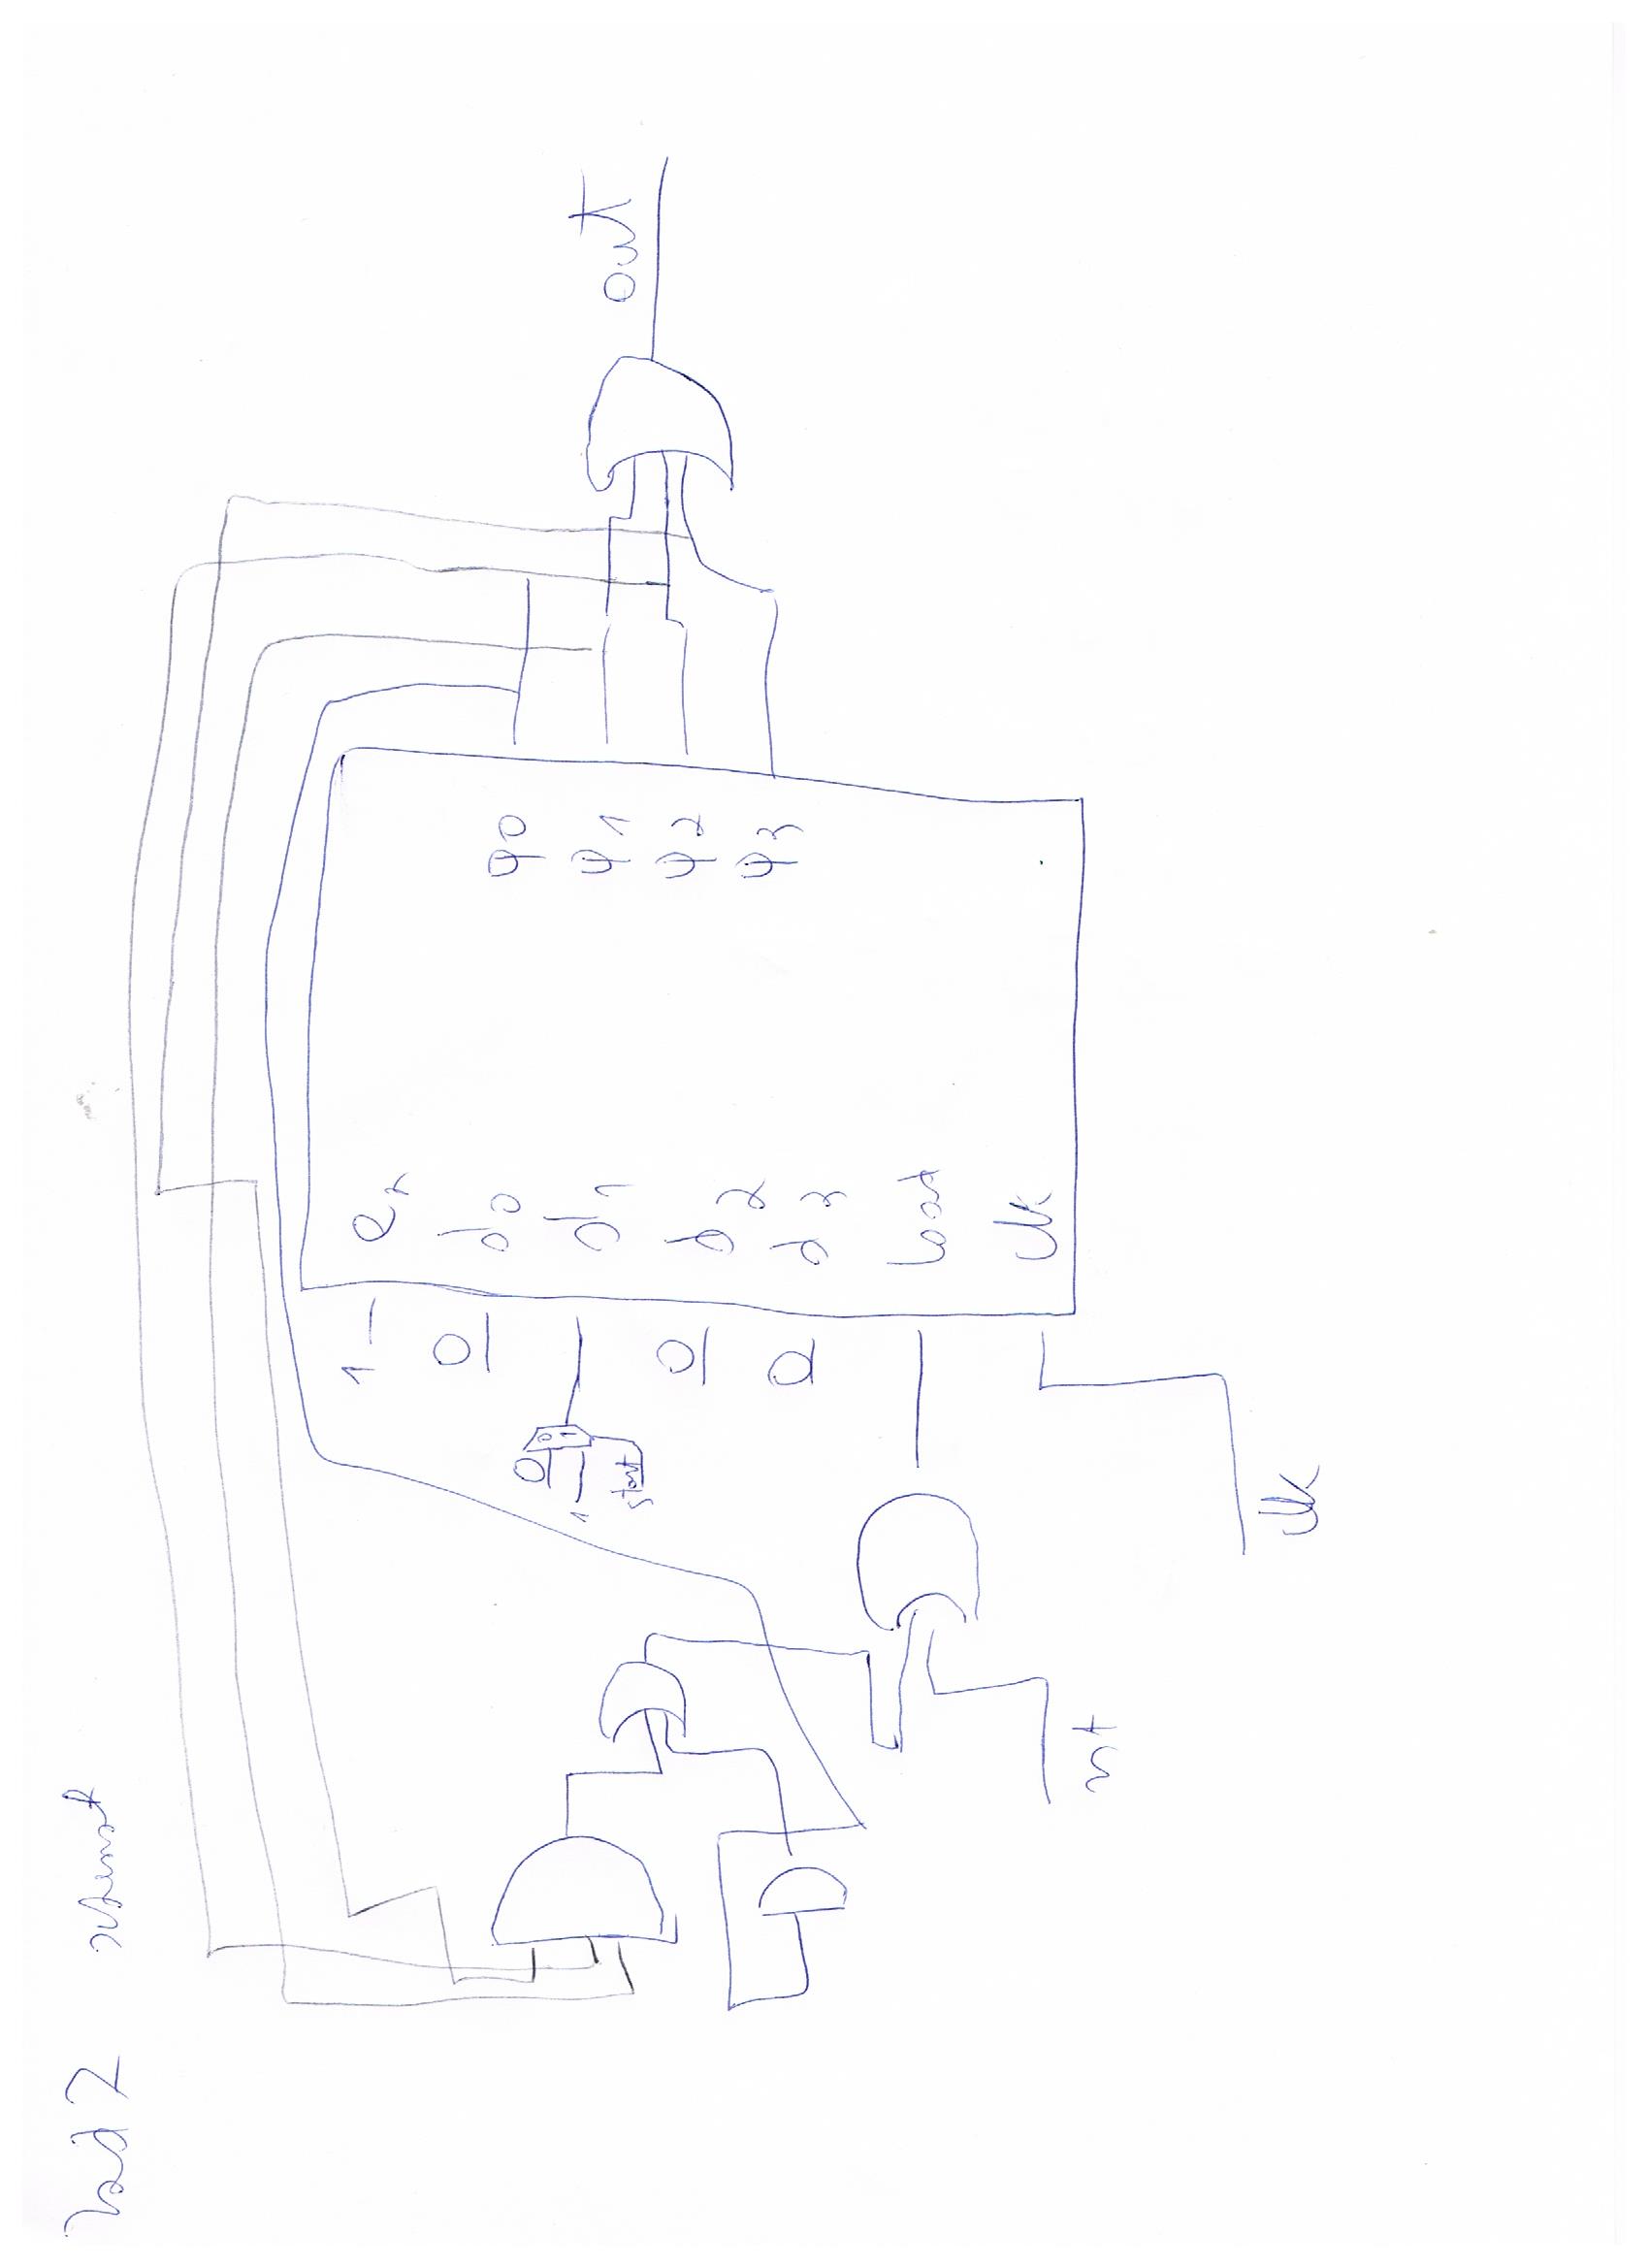 Zad 2 schemat
1 en
0 d0
0 0
1 1 d1
start
0 d2
0 d3
load
clk
q0
q1
q2
q3
out
rst
clk